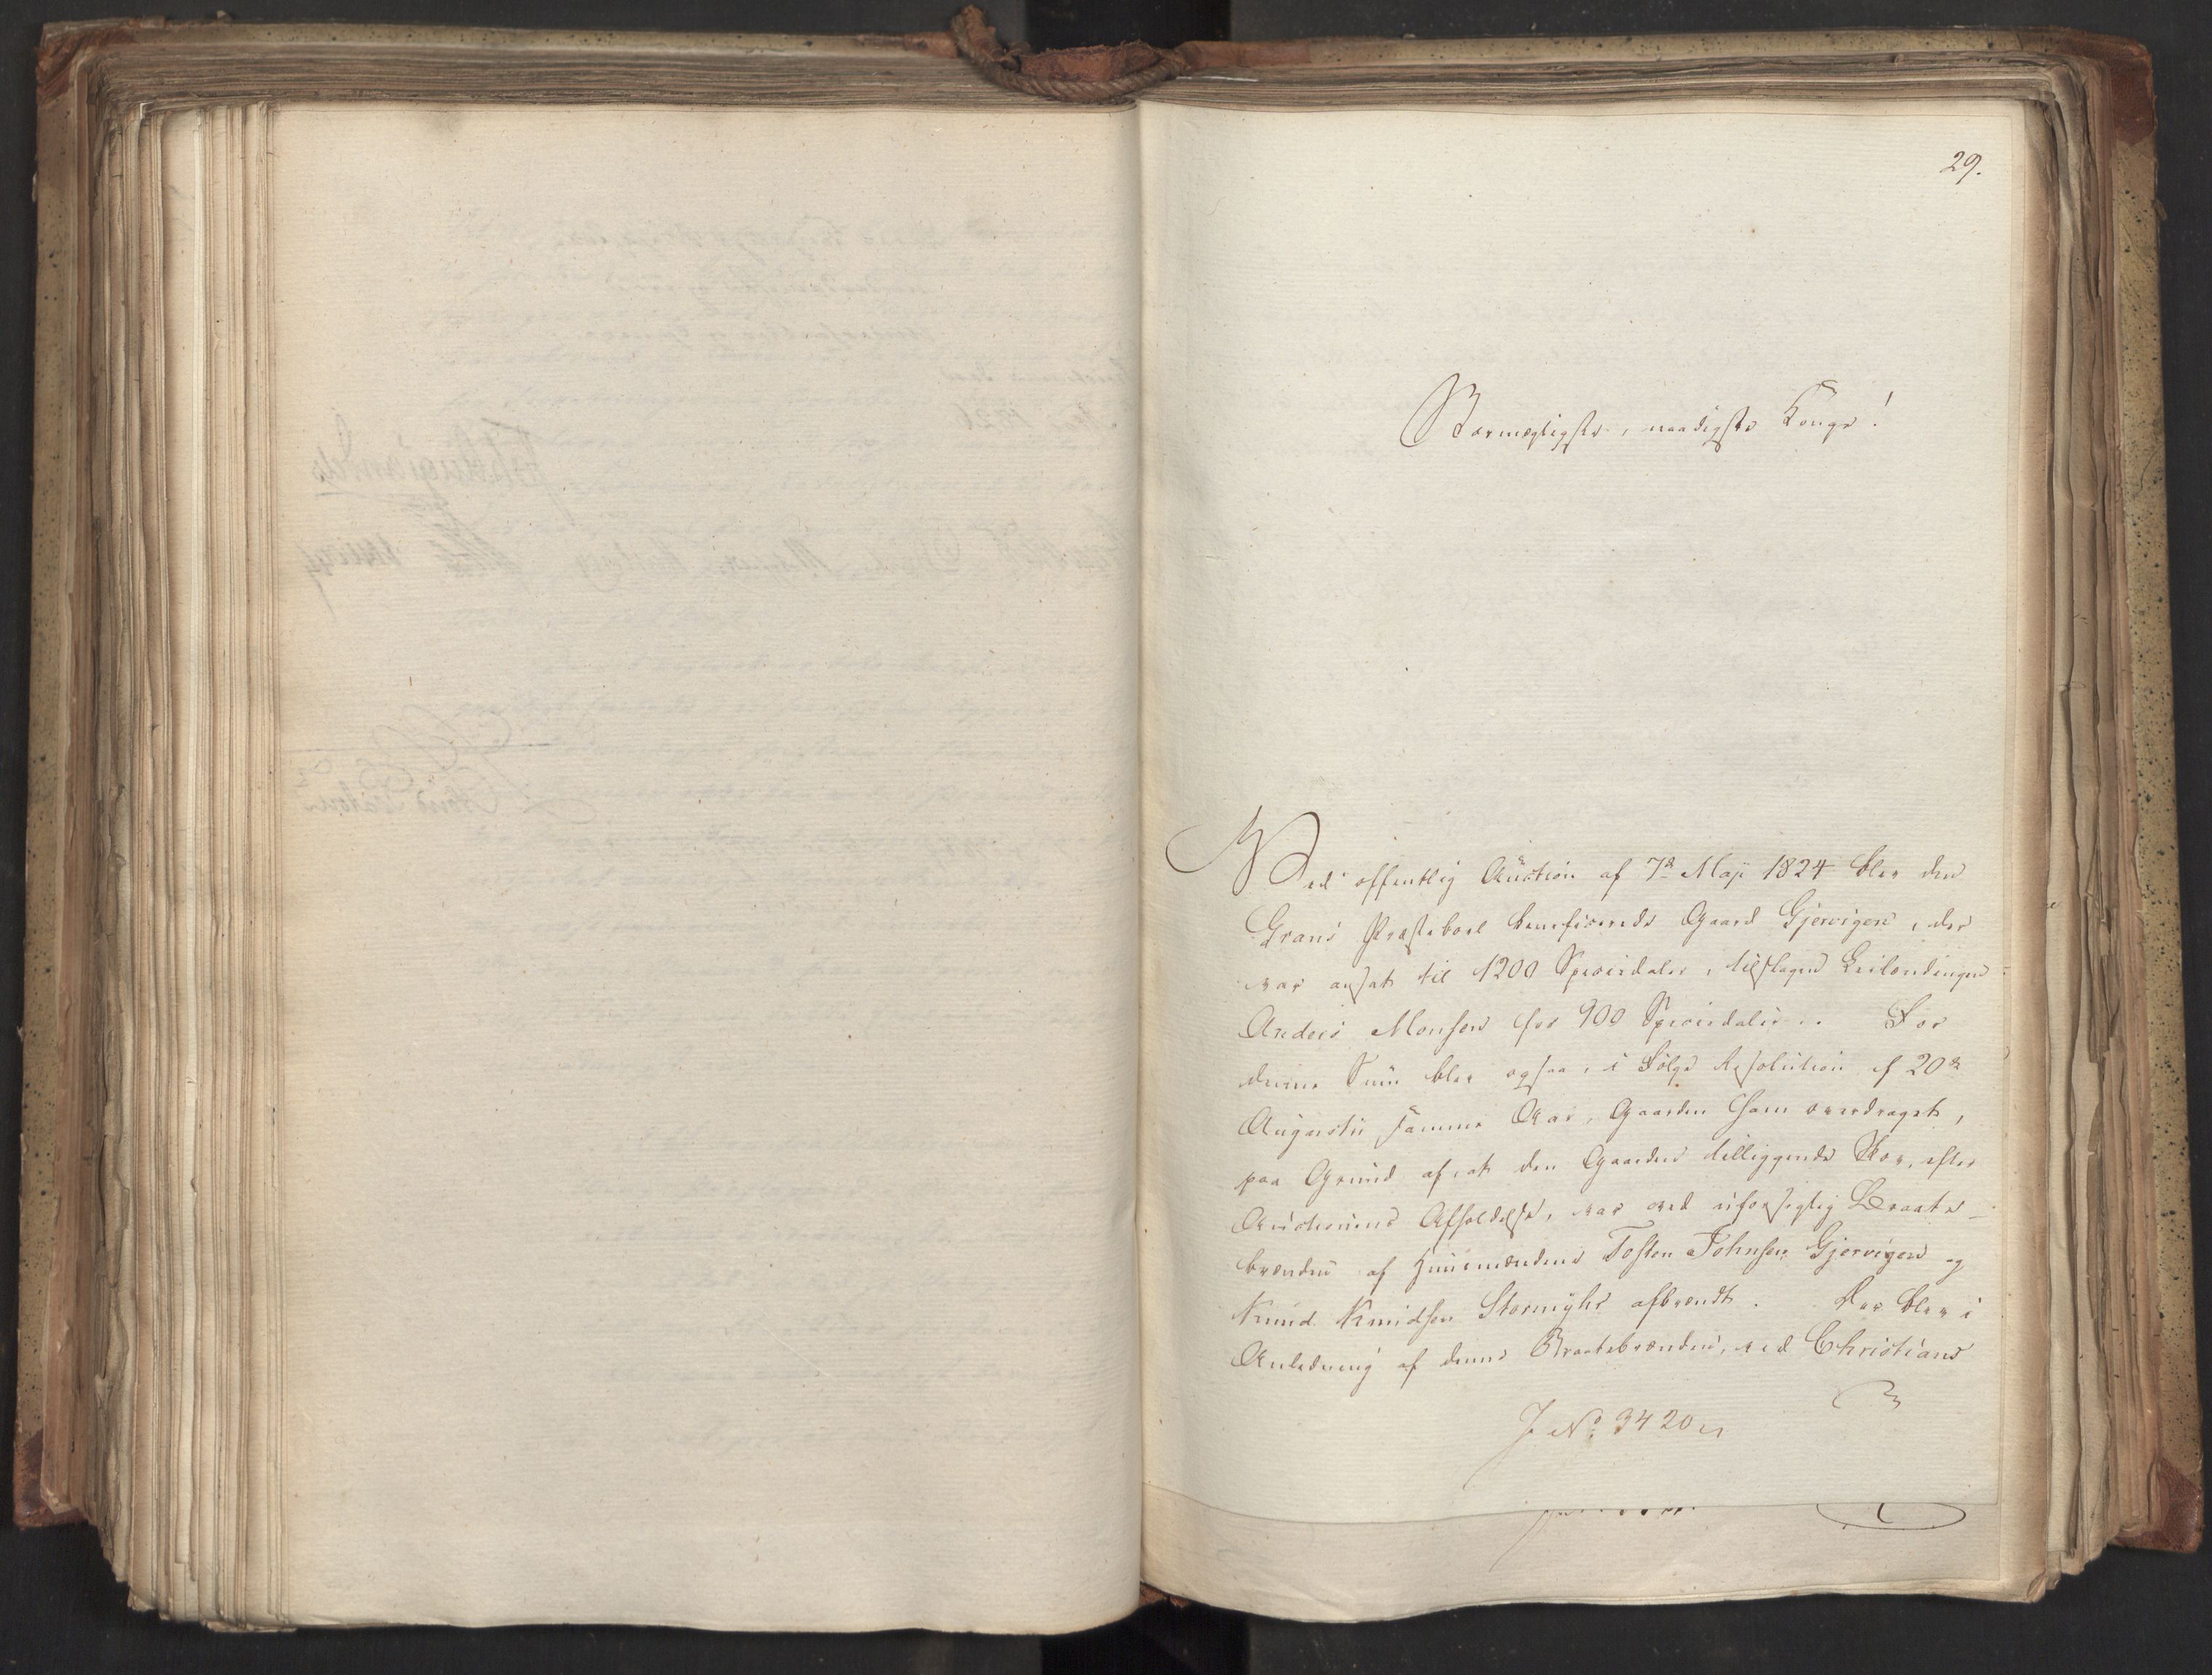 29.
Stormægtigste, naadigste Konge!
Ved offentlig Auction af 7de Maji 1824 blev den
Grans Præsteboel beneficerede Gaard Gjervigen, der
var ansat til 1200 Speciedaler, tilslagen Leilændingen
Anders Monsen for 900 Speciedaler. For
denne Sum blev ogsaa, i Følge Resolution af 20de
Augusti samme Aar, Gaarden ham overdraget,
paa Grund af, at den Gaarden tilliggende Skov, efter
Auctionens Afholdelse, var ved uforsigtig Braate-
brænden af Huusmændene Tosten Johnsen Gjervigen og
Knud Knudsen Stormyhr afbrændt. Der blev i
Anledning af denne Braatebrænden, ved Christians
J. No. 3420